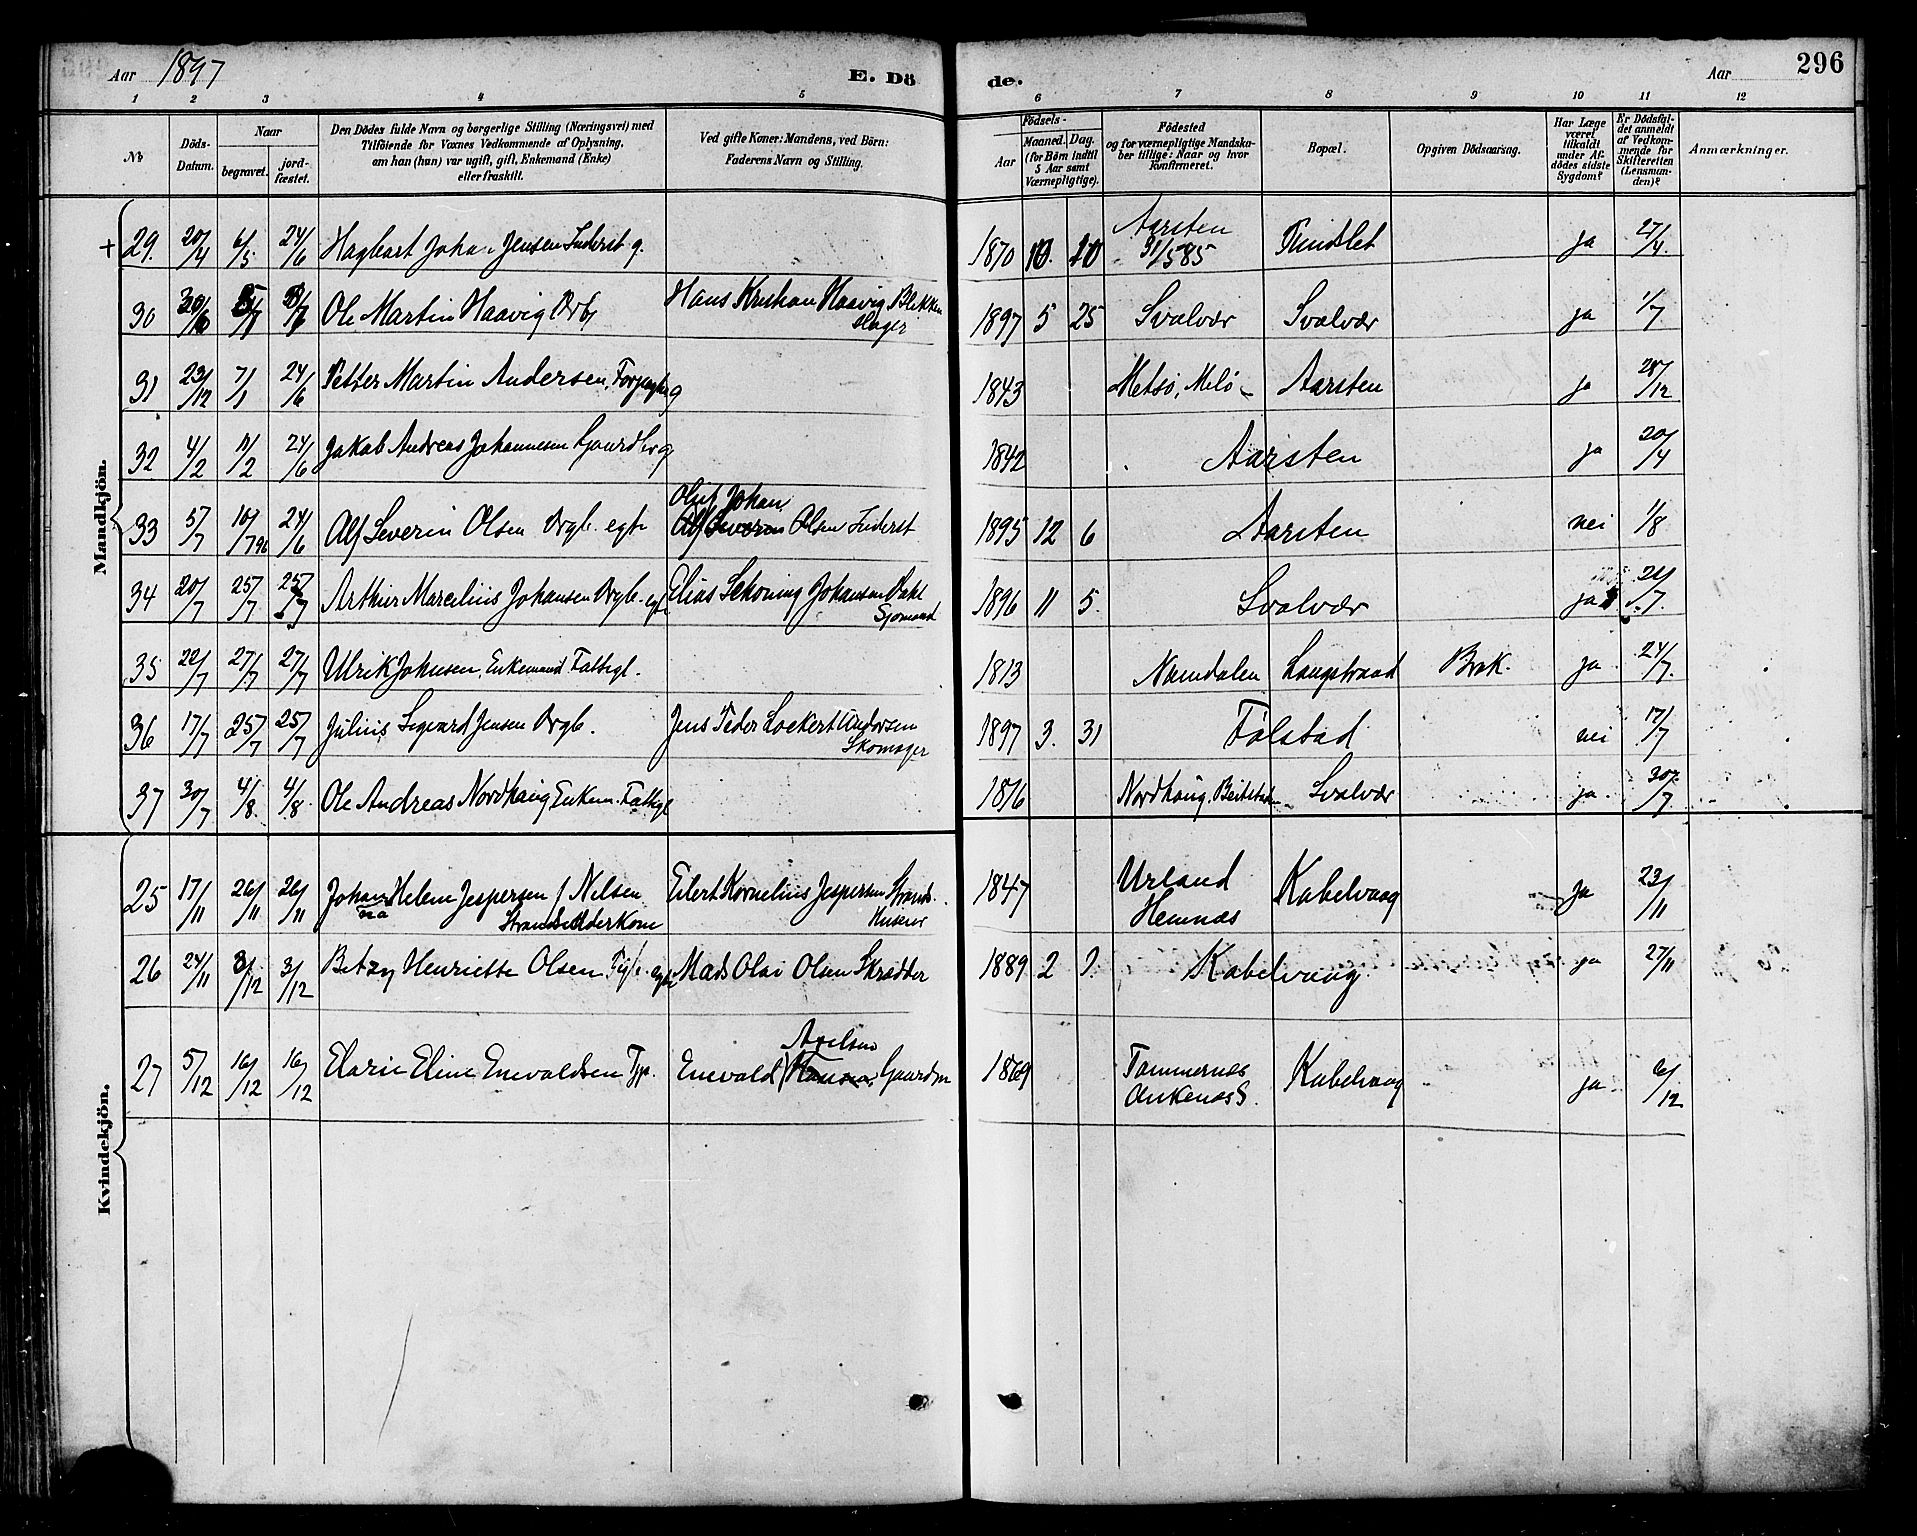 Aar 1897 E. Dö de. Aar 296
1 2 3 4 5 6 7 8 9 10 11 12
No
Döds-Datum.
Naar begravet. jordfæstet.
Den Dödes fulde Navn og borgerlige Stilling (Næringsvei) med
Tilföiende for Voxnes Vedkommende af Oplysning,
om han (hun) var ugift, gift, Enkemand (Enke)
eller fraskilt.
Ved gifte Koner: Mandens, ved Börn:
Faderens Navn og Stilling.
Födsels-
Aar Maaned. Dag. (for Börn indtil 5 Aar samt Værnepligtige).
Födested
og for værnepligtige Mandskaber tillige: Naar og hvor Konfirmeret.
Bopæl.
Opgiven Dödsaarsag.
Har Læge været tilkaldt under Afdödes sidste Sygdom?
Er Dödsfaldet anmeldt af Vedkommende for Skifteretten (Lensmanden)?
Anmærkninger.
Mandkjön.
+ 29. 20/4 6/5 24/6 Hagbart Johan Jensen Inderst g. 1870 10. 10 Aarsten 31/5 85 Tindlet ja 27/4.
30 Ole Martin Haavig Drb Hans Kristian Haavig Blikkenslager 1897 5 25 Svolvær Svolvær ja 1/7
31 23/12 7/1 24/6 Petter Martin Andersen, g 1843 Metsö, Melö Aarsten ja 28/12
32 4/2 11/2 24/6 Jakob Andreas Johannesen Gaardbr g 1842 Aarsten ja 20/4
33 5/7 10/7 96 24/6 Alf Severin Olsen Drgb. egte Oluf Johan Alf Severin Olsen Inderst 1895 12 6 Aarsten nei 1/8
34 20/7 25/7 25/7 Arthur Marcelius Johansen Drgb. egte Elias Schöning Johansen Dahl Sjomand 1896 11 5. Svolvær ja 21/7.
35 22/7 27/7 27/7 Ulrik Johnsen, Enkemand Fattigl. 1813 Namdalen Langstrand Brok. ja 24/7.
36 17/7 25/7 25/7 Julius Sigvard Jensen Drgb. Jens Peder Lockert Andersen Skomager 1897 3. 31 Følstad nei 17/7
37 30/7 4/8. 4/8. Ole Andreas Nordhaug Enkem. Fattigl 1816 Nordhaug, Beitstaden Svolvær ja 30/7
Kvindekjön.
25 17/11 26/11 26/11 Johanna Helene Jespersen f Nilsen Strandsidderkone Eilert Kornelius Jespersen Strand. 1847 Urland Hemnæs Kabelvaag ja 23/11
26 24/11 3/12 3/12 Betzy Henriette Olsen Mads Olai Olsen Skrædder 1889 2 Kabelvaag ja 27/11
27 5/12 16/12 16/12 Elarie Eline Enevoldsen Enevold Axelsen Hansen Gaardm 1869 Tommernes Ankenes S. Kabelvaag ja 6/12